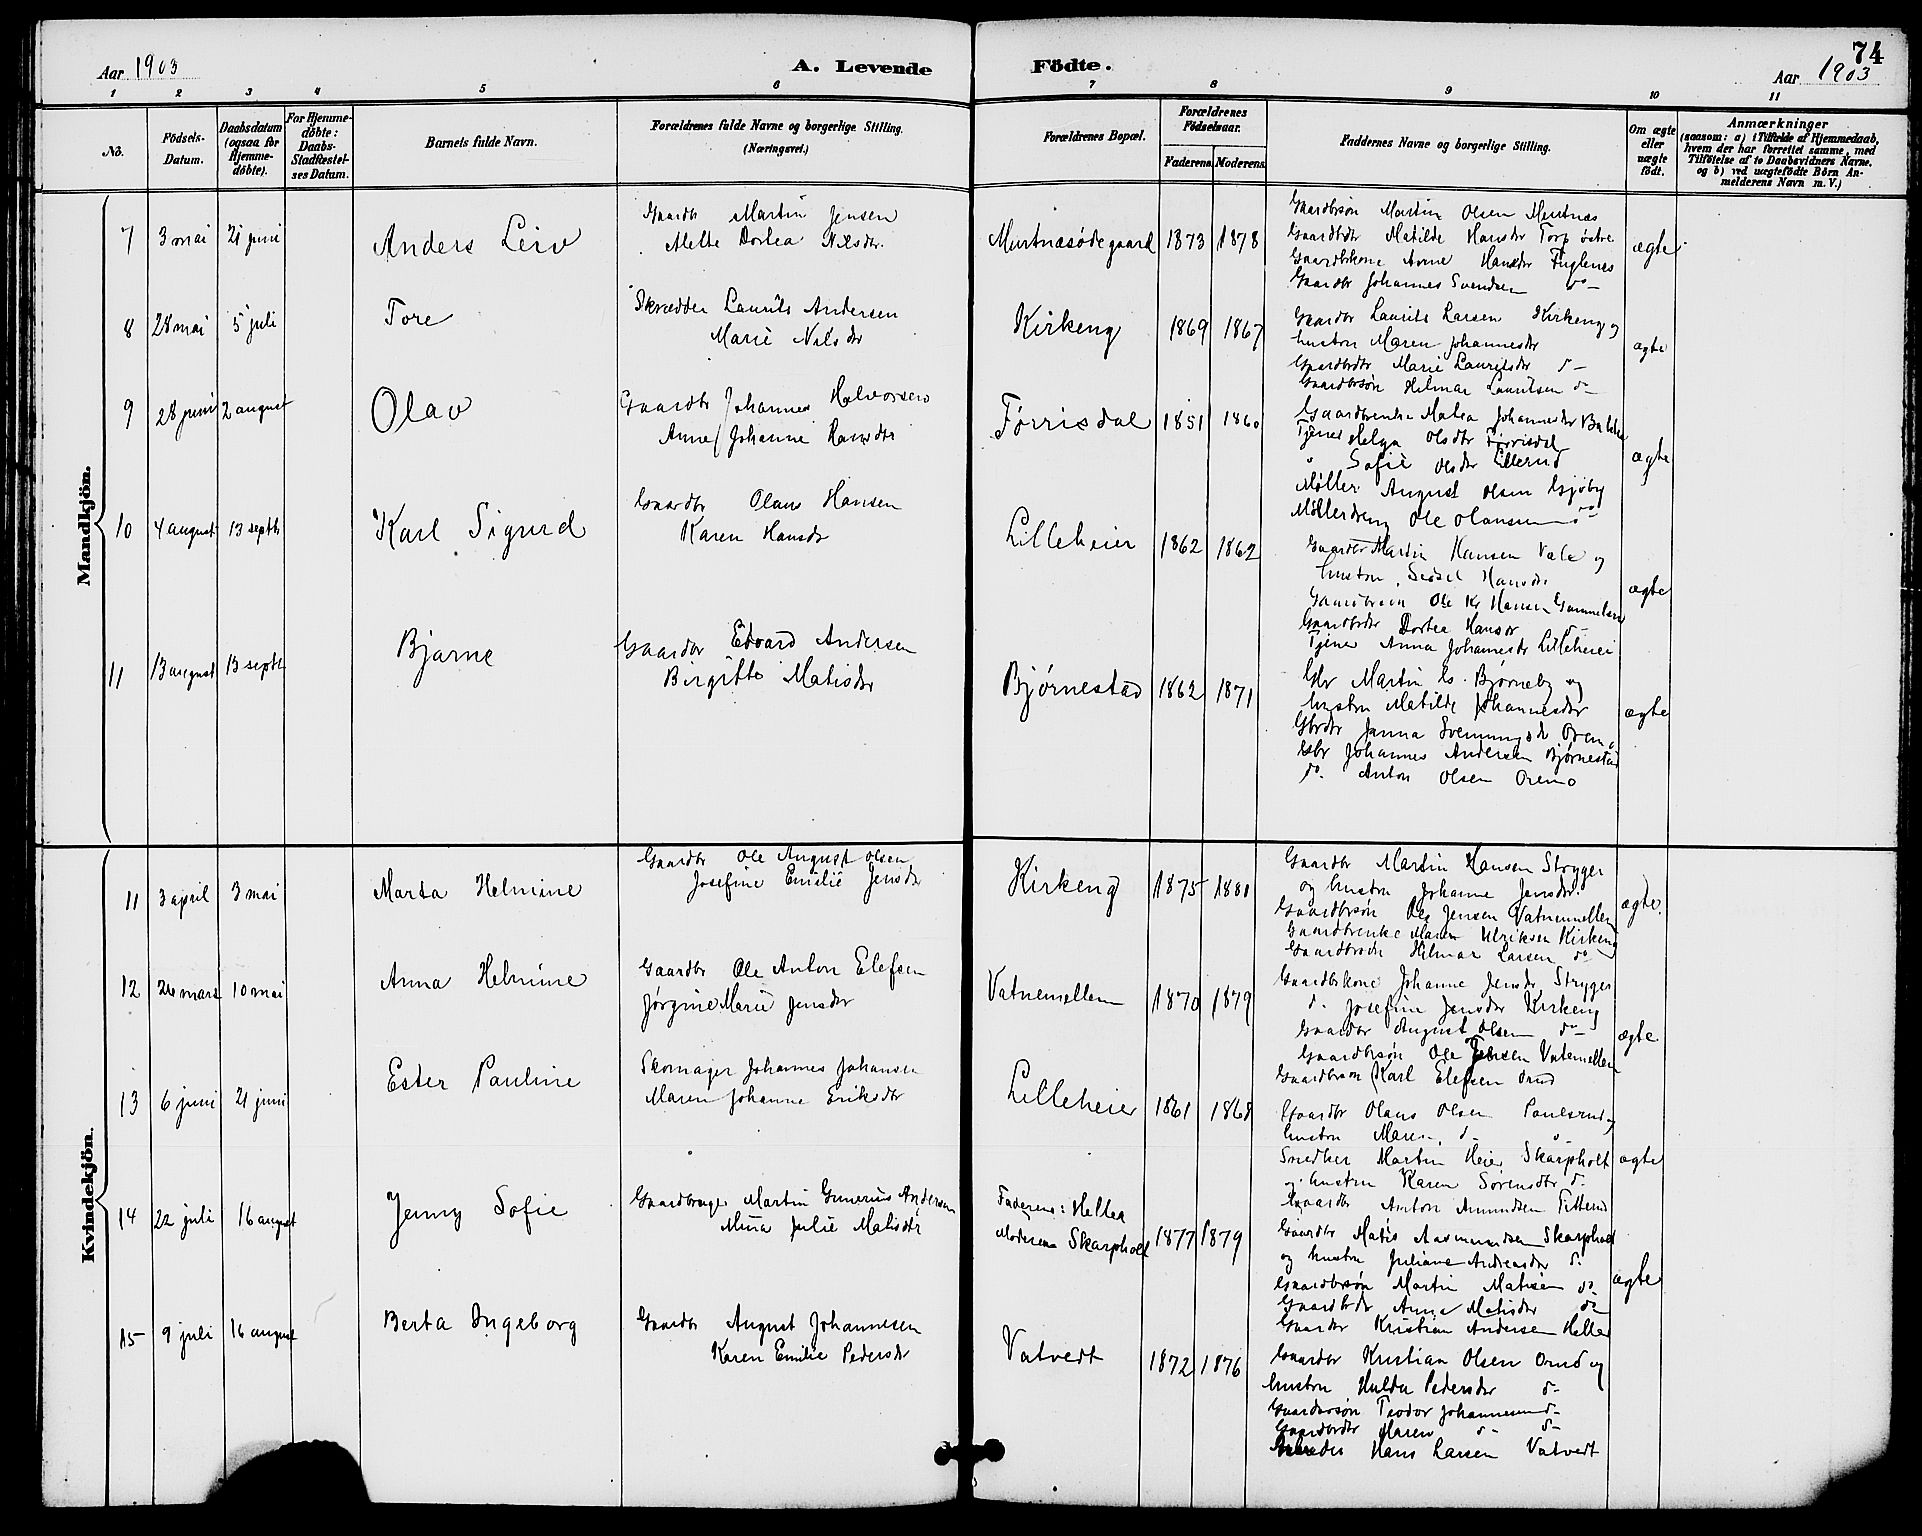 Aar 1903
A. Levende Födte.
74
Aar 1903
1 2 3 4 5 6 7 8 9 10 11
No.
Födsels-Datum.
Daabsdatum (ogsaa for Hjemme-döbte).
For Hjemme-döbte: Daabs-Stadfæstel-ses Datum.
Barnets fulde Navn.
Forældrenes fulde Navne og borgerlige Stilling. (Næringsvei.)
Forældrenes Bopæl.
Forældrenes Födselsaar.
Faderens. Moderens.
Faddernes Navne og borgerlige Stilling.
Om ægte eller uægte födt.
Anmærkninger
(saasom: a) i Tilfælde af Hjemmedaab, hvem der har forrettet samme, med Tilföielse af to Daabsvidners Navne, og b) ved uægtefödte Börn Anmelderens Navn m. V.)
Mandkjön.
7 3 mai 21 juni Anders Leiv
Gaardbr Martin Jensen
Mette Dortea Nilsdr.
1873 1878
Gaardbrsøn Martin Olsen
Gaardbdtr Matilde Hansdr Torp østre
Gaardbrkone Anne Hansdr Fuglenes
Gaardbr Johannes Svendsen do
ægte
8 28 mai 5 juli Tore
Skrædder Laurits Andersen
Marie Nilsdr
Kirkeng 1869 1867
Gaardbr Laurits Larsen Kirkeng og
hustru Maren Johannesdr
Gaardbrdtr Marie Lauritsdr d-
Gaardbrsøn Hilmar Lauritsen do
ægte
9 28 juni 2 august Olav
Gaardbr Johannes Halvorsen
Anne Johanne Hansdtr
Førrisdal 1851 1860
Gaardbrenke Matea Johannesdtr
Tjener Helga Olsdtr Førrisdal
" Sofie Olsdtr Lillerud
Møller August Olsen Gjøby
Møllerdreng Ole Olaussen do
ægte
10 4 august 13 septb Karl Sigurd
Gaardbr Olaus Hansen
Karen Hansdr
Lilleheier 1862 1862
Gaardbr Martin Hansen Vale og
hustru Sedsel Hansdr
Gaardbrsøn Ole Kr Hansen
Gaardbrdtr Dortea Hansdr
Tjener Anna Johannesdr Lilleheier
ægte
11 13 august 13 septb Bjarne
Gaardbr Edvard Andersen
Birgitte Matisdr
Bjørnestad 1862 1871
Gbr Martin Bjørneby og
hustru Matilde Johannesdr
Gbrdtr Janna
Gbr Johannes Andersen Bjørnestad
do. Anton Olsen Oremo
ægte
Kvindekjön.
11 3 april 3 mai Marta Helmine
Gaardbr Ole August Olsen
Josefine Emilie Jensdr
Kirkeng 1875 1881
Gaardbr Martin Hansen Stryger
og hustru Johanne Jensdtr.
Gaardbrsøn Ole Jensen Vatnemellem
Gaardbrenke Maren Ulriksen Kirkeng
Gaardbrsøn Hilmar Larsen do
ægte.
12 26 mars 10 mai Anna Helmine
Gaardbr Ole Anton Elefsen
Jørgine Marie Jensdr
Vatnemellem 1870 1879
Gaardbrkone Johanne Jensdr Stryger
d- Josefine Jensdr Kirkeng
Gaardbr August Olsen do
Gaardbrsøn Ole Jensen Vatnemellem
Gaardbrsøn Karl Elefsen
ægte
13 6 juni 21 juni Ester Pauline
Skomager Johannes Johansen
Maren Johanne Eriksdtr
Lilleheier 1861 1868
Gaardbr Olaus Olsen Paulsrud og
hustru Maren d-
Snedker Martin Heier Skarpholt
og hustru Karen Sørensdtr d-
Gaardbr Anton Amundsen
ægte
14 22 juli 16 august Jenny Sofie
Gaardbruger Martin Gunerius Andersen
Mina Julie Matisdtr
Faderens: Hellea
Moderens Skarpholt 1877 1879
Gaardbr Matis Aasmundsen Skarpholt
og hustru Juliane Andreasdtr d-
Gaardbrsøn Martin Matisen do
Gaardbrdtr Anna Matisdtr do
Gaardbr Kristian Andersen Hellea
ægte
15 9 juli 16 august Berta Ingeborg
Gaardbr August Johannesen
Karen Emilie Pedersdr
Vatvedt 1872 1876
Gaardbr Kristian Olsen Orud og
hustru Hulda Pedersdtr d-
Gaardbrsøn Teodor Johannesen d-
Gaardbrdtr Maren d- d-
Hans Larsen Vatvedt